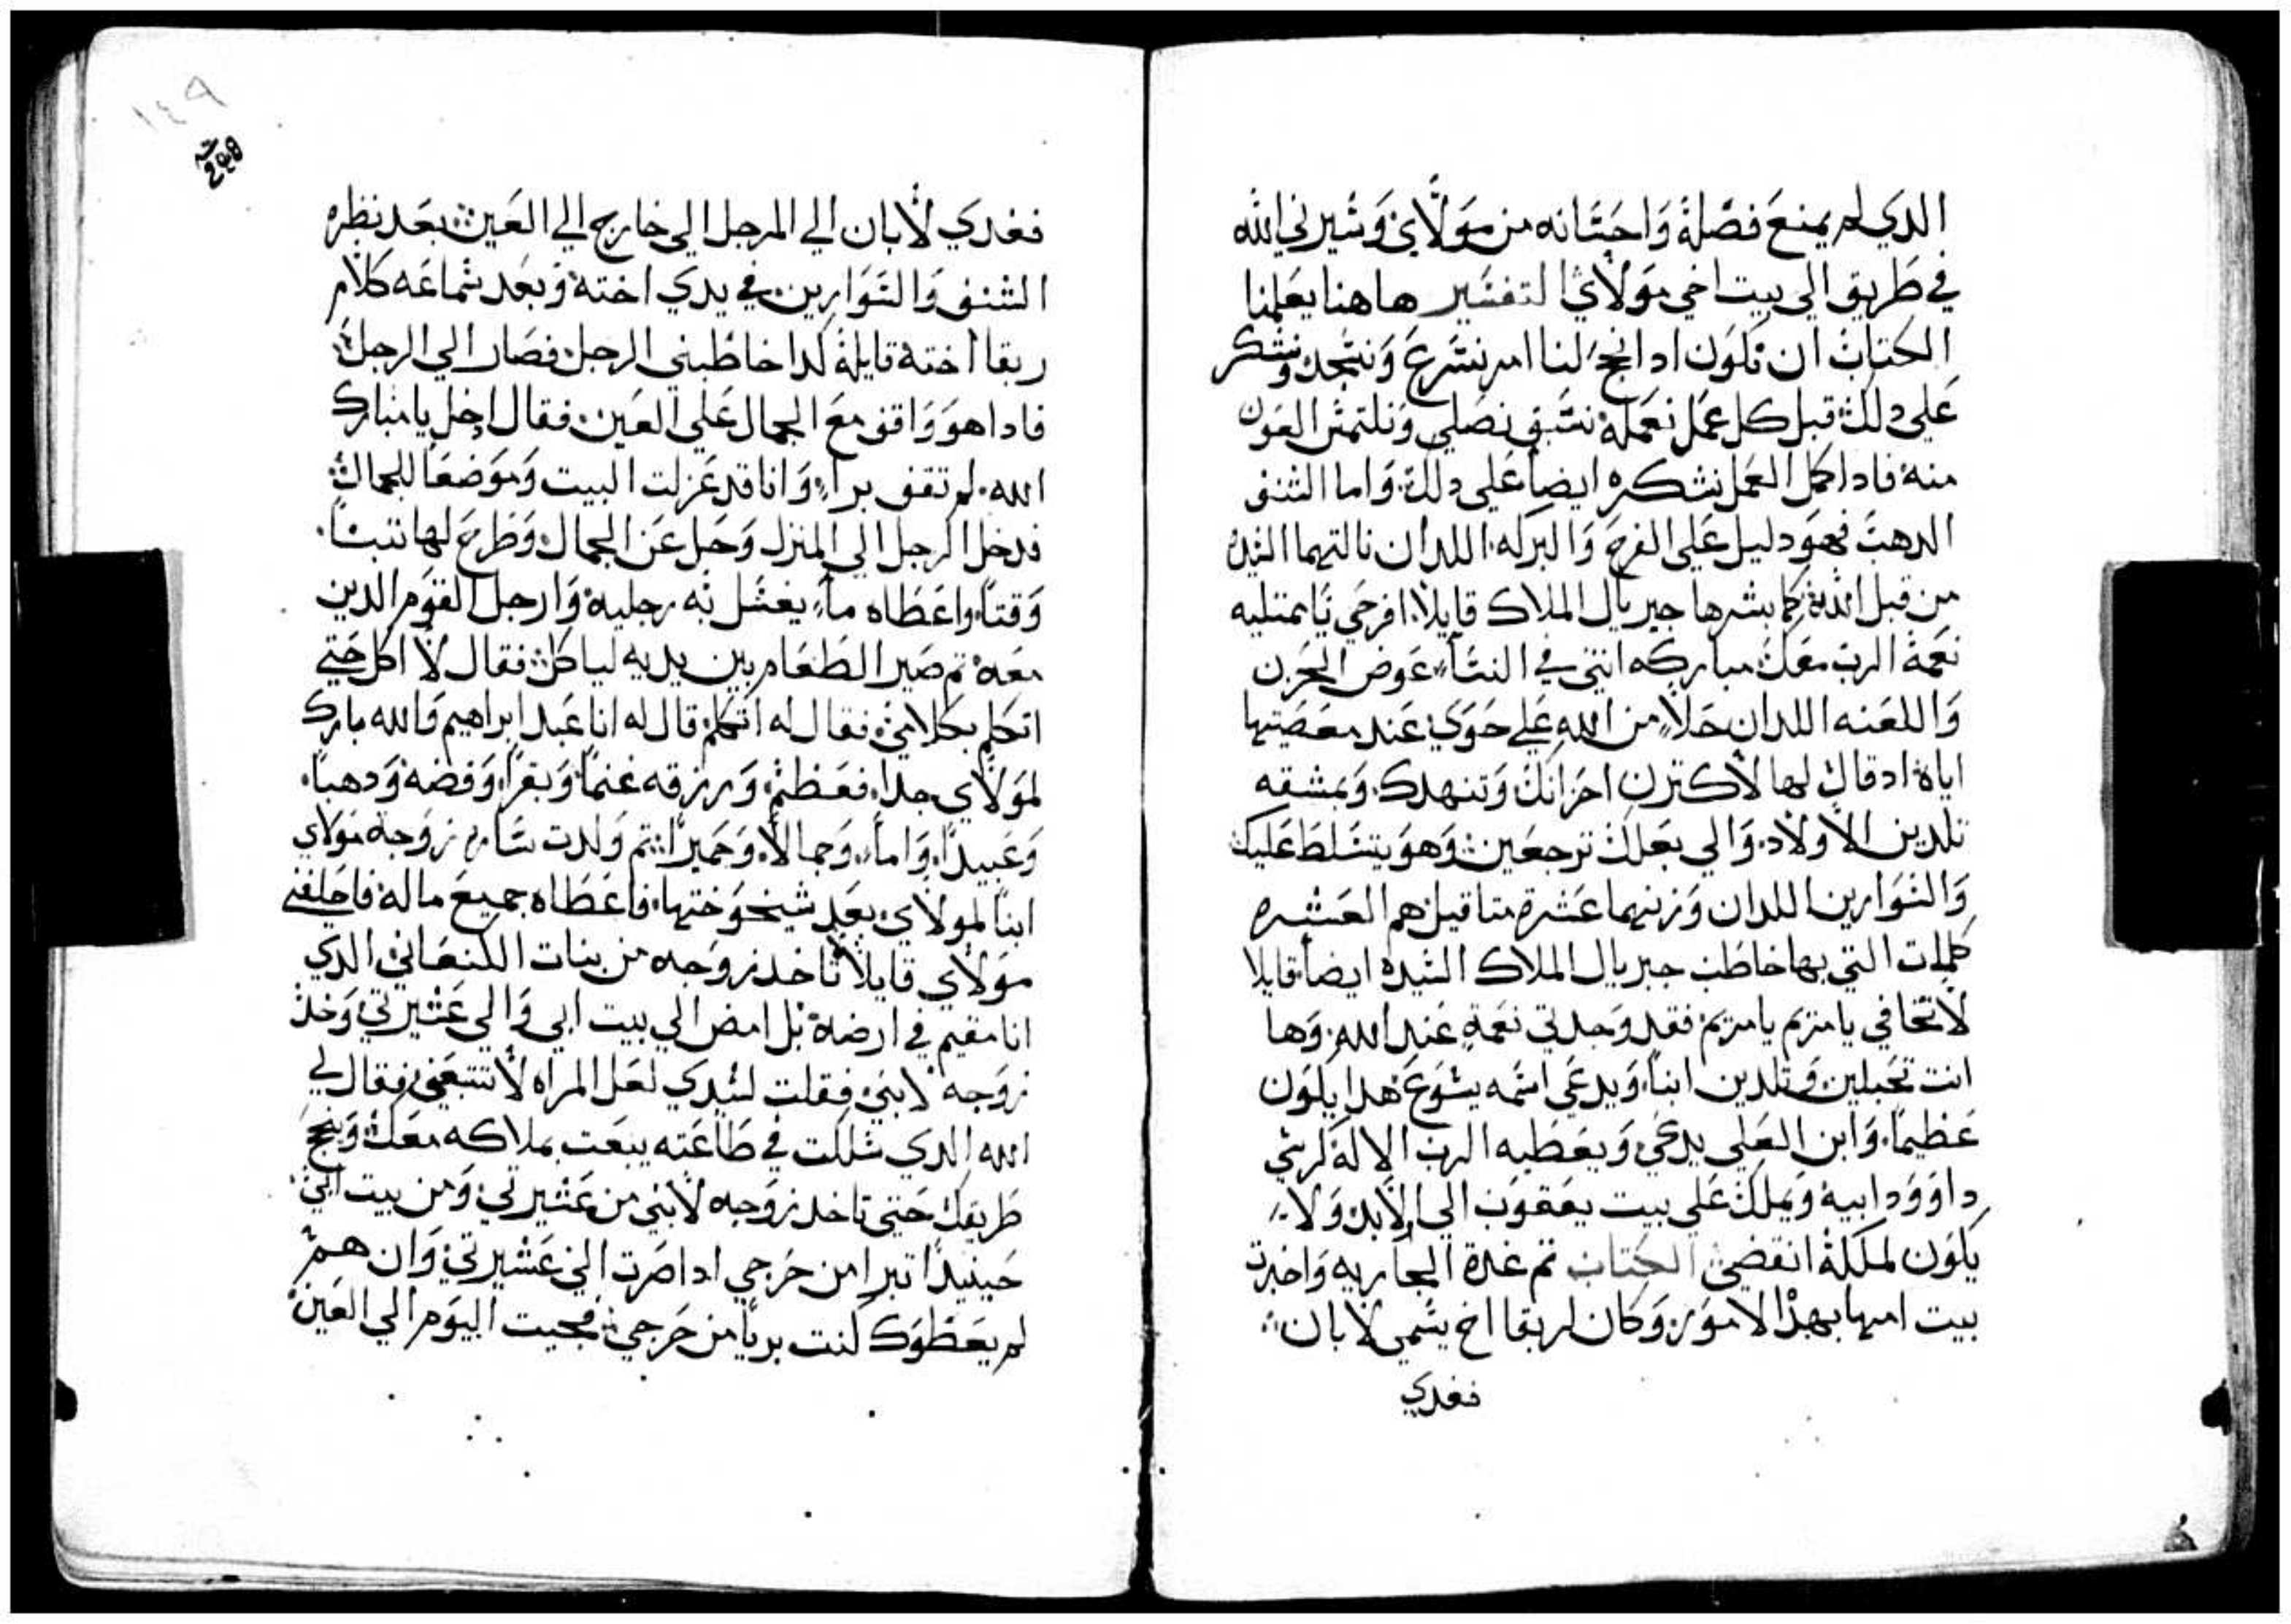 الدي لم يمنع فضله واحسانه من مولاي وسيرني الله
في طريق الي بيت اخي مولاي التفسير هاهنا يعلمنا
الكتاب ان نكون ادا نجح لنا امر نسرع ونسجد ونشكر
علي دلك قبل كل عمل نعمله نسبق نصلي ونلتمس العون
منه فادا كمل العمل نشكره ايضا علي دلك واما الشنف
الدهب فهو دليل علي الفرح والبركه اللدان نالتهما السيده
من قبل الله كما بشرها جبريال الملاك قايلا افرحي يا ممتليه
نعمة الرب معك مباركه انتي في النساء عوض الحزن
واللعنه اللدان حلا من الله علي حوي عند معصيتها
اياه اد قال لها لاكترن احزانك وتنهدك وبمشقه
تلدين الاولاد والي بعلك ترجعين وهو يتسلط عليك
والسوارين اللدان وزنهما عشرة متاقيل هم العشره
كلمات التي بها خاطب جبريال الملاك السيده ايضا قايلا
لا تخافي يا مريم يا مريم فقد وجدتي نعمة عند الله وها
انت تحبلين وتلدين ابنا ويدعي اسمه يسوع هدا يكون
عظيما وابن العلي يدعي ويعطيه الرب الاله كرسي
داوود ابيه ويملك علي بيت يعقوب الي الابد ولا
يكون لملكه انقضي الكتاب تم غدة الجاريه واخبرت
بيت امها بهدا الامور وكان لربقا اخ يسمي لابان
فغدي
١٤٩
فغدي لابان الي الرجل الي خارج الي العين بعد نظره
الشنف والسوارين في يدي اخته وبعد سماعه كلام
ربقا اخته قايلة كدا خاطبني الرجل فصار الي الرجل
فادا هو واقف مع الجمال علي العين فقال ادخل يا مبارك
الله لم تقف برا وانا قد عزلت البيت وموضعا للجمال
فدخل الرجل الي المنزل وحل عن الجمال وطرح لها تبنا
وقتا واعطاه ماء يغسل به رجليه وارجل القوم الدين
معه تم صير الطعام بين يديه لياكل فقال لا اكل حتي
اتكلم بكلامي فقال له اتكلم قال له انا عبد ابراهيم والله بارك
لمولاي جدا فعظم ورزقه غنما وبقرا وفضه ودهبا
وعبيدا واماء وجمالا وحميرا تم ولدت ساره زوجة مولاي
ابنا لمولاي بعد شيخوختها فاعطاه جميع ماله فاحلفني
مولاي قايلا لا تاخد زوجه من بنات الكنعاني الدي
انا مقيم في ارضه بل امض الي بيت ابي والي عشيرتي وخد
زوجه لابني فقلت لسيدي لعل المراه لا تتبعني فقال لي
الله الدي سلكت في طاعته يبعت بملاكه معك وينجح
طريقك حتي تاخد زوجه لابني من عشيرتي ومن بيت ابي
حينيدا تبرا من حرجي ادا صرت الي عشيرتي وان هم
لم يعطوك كنت بريا من حرجي فجيت اليوم الي العين